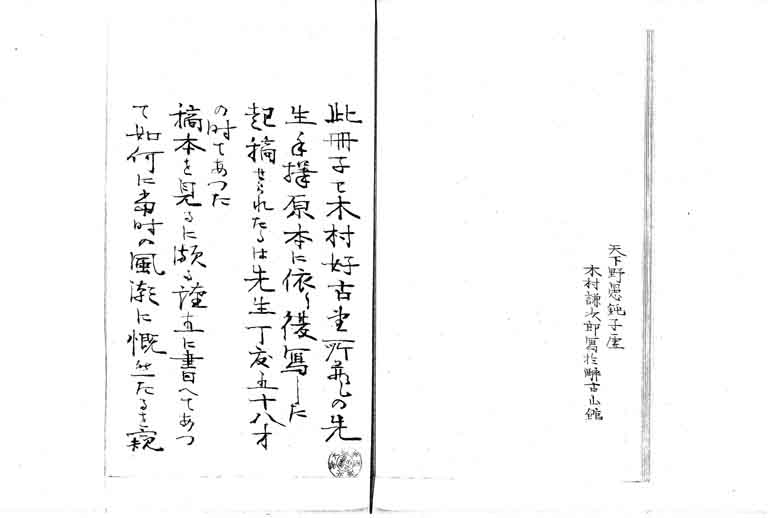 天下野愚鈍子屋
木村謙次郎寫於酔古山館
此冊子ハ木村好古堂所蔵の先
生手擇原本に依り復写した
起稿せられたるは先生丁度五十八才
の时であつた
稿本を見るに頗る謹直に書へてあつ
て如何に当时の風潮に慨せたるを窺